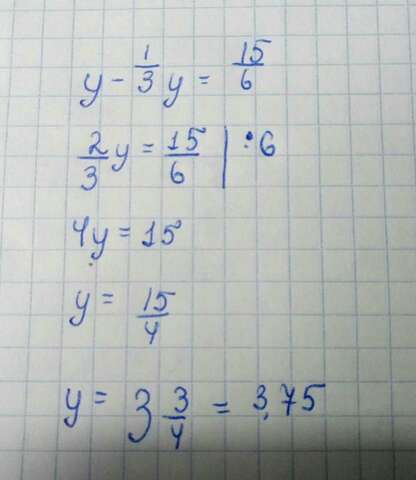 y - 1/3 y = 15/6
2/3 y = 15/6 | :6
4y = 15
y = 15/4
y = 3 3/4 = 3,75